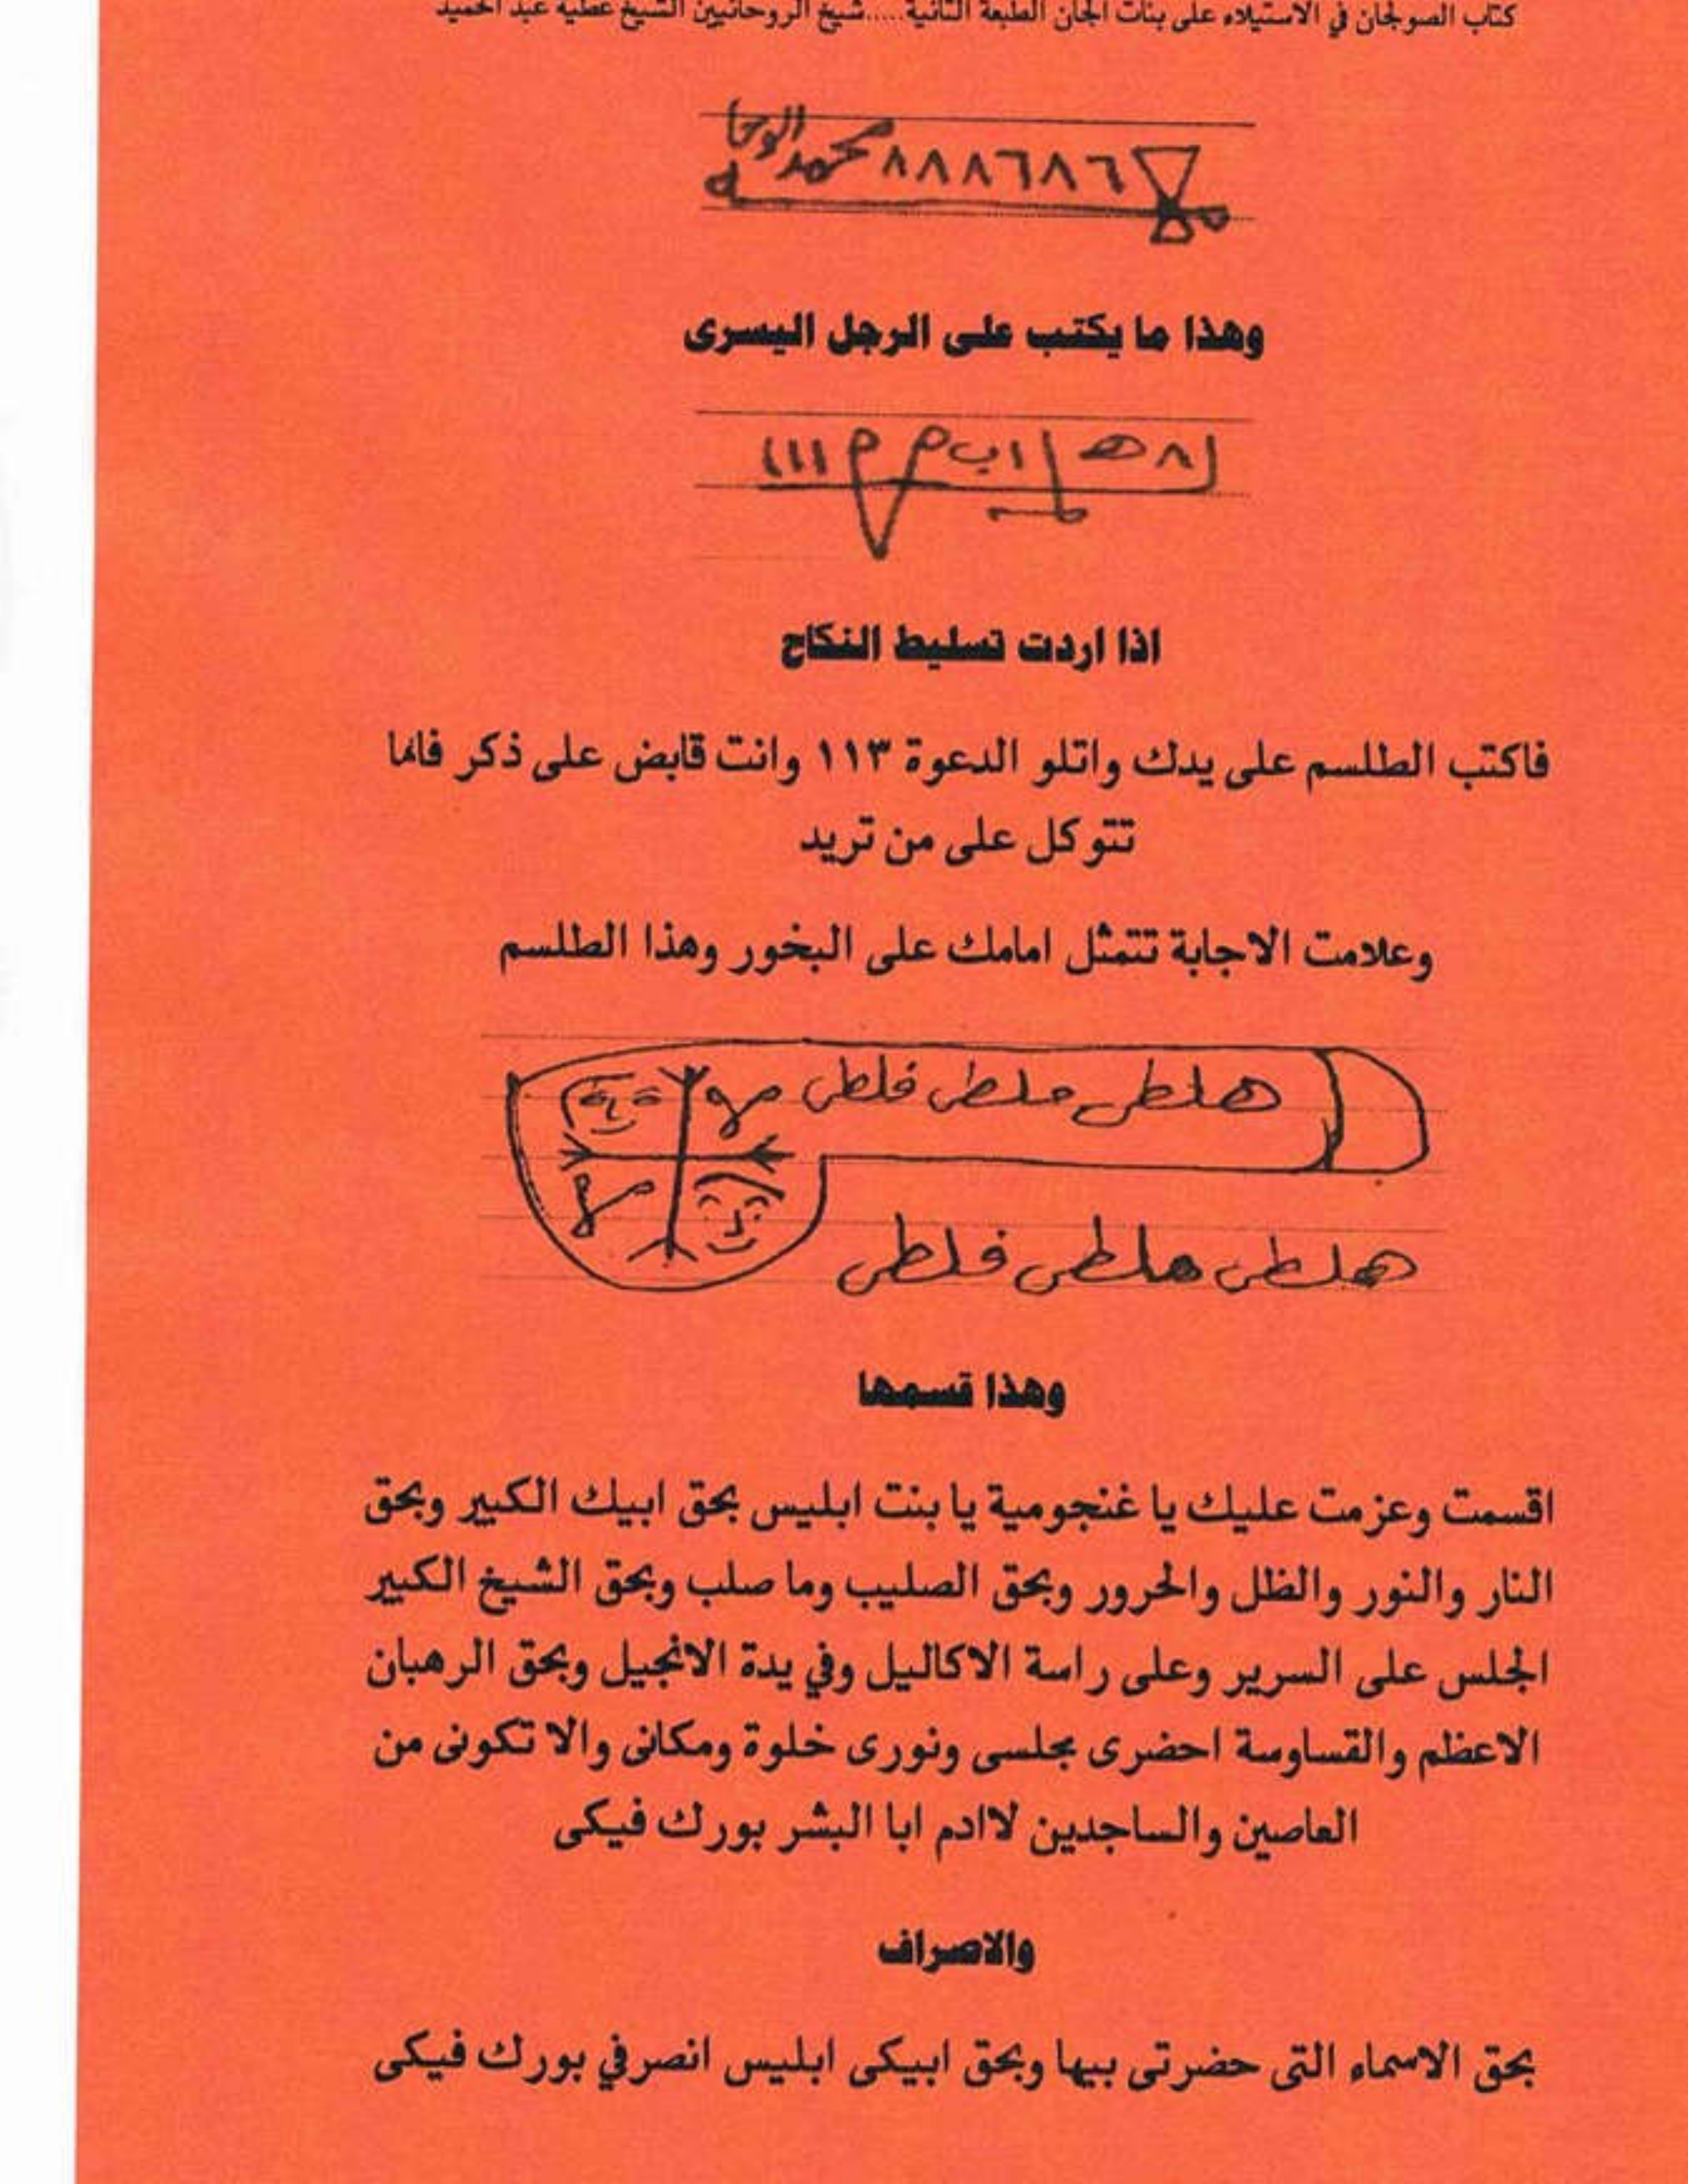 كتاب الصولجان في الاستيلاء على بنات الجان الطبعة الثانية.....شيخ الروحانيين الشيخ عطية عبد الحميد
٨٨٨٦٨٦ محمد الوحا
وهذا ما يكتب على الرجل اليسرى
اذا اردت تسليط النكاح
فاكتب الطلسم على يدك واتلو الدعوة ١١٣ وانت قابض على ذكر فانما
تتوكل على من تريد
وعلامت الاجابة تتمثل امامك على البخور وهذا الطلسم
هلطى ملطى فلطى
هلطى ملطى فلطى
وهذا قسمها
اقسمت وعزمت عليك يا غنجومية يا بنت ابليس بحق ابيك الكبير وبحق
النار والنور والظل والحرور وبحق الصليب وما صلب وبحق الشيخ الكبير
الجلس على السرير وعلى راسة الاكاليل وفي يدة الانجيل وبحق الرهبان
الاعظم والقساوسة احضرى مجلسى ونورى خلوة ومكانى والا تكونى من
العاصين والساجدين لاادم ابا البشر بورك فيكى
والاصراف
بحق الاسماء التى حضرتى بيها وبحق ابيكى ابليس انصرفي بورك فيكى